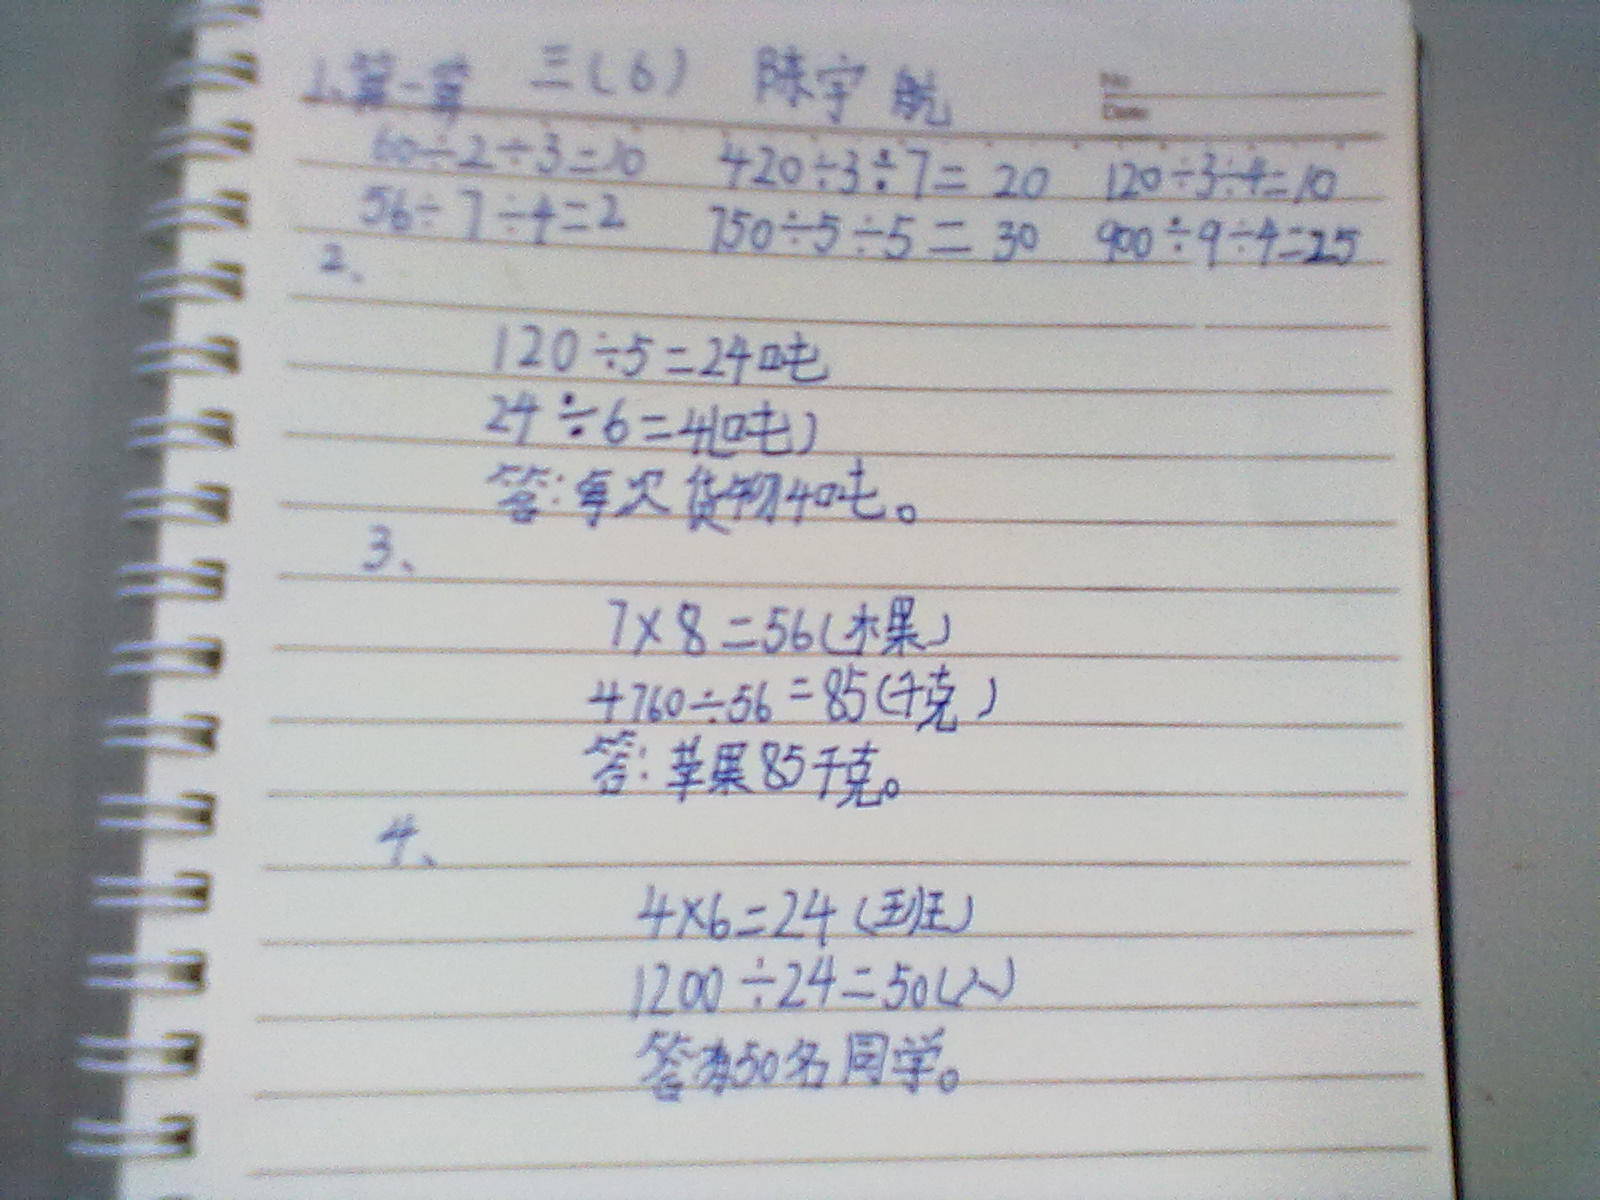 1、算一算 三(6) 陈宇航
No
Date
60÷2÷3=10 420÷3÷7= 20 120÷3÷4=10
56÷7÷4=2 750÷5÷5= 30 900÷9÷4=25
2、
120÷5=24吨
24÷6=4(吨)
答:每次货物4吨。
3、
7×8=56(水果)
4760÷56=85(千克)
答:苹果85千克。
4、
4×6=24(班)
1200÷24=50(人)
答有50名同学。